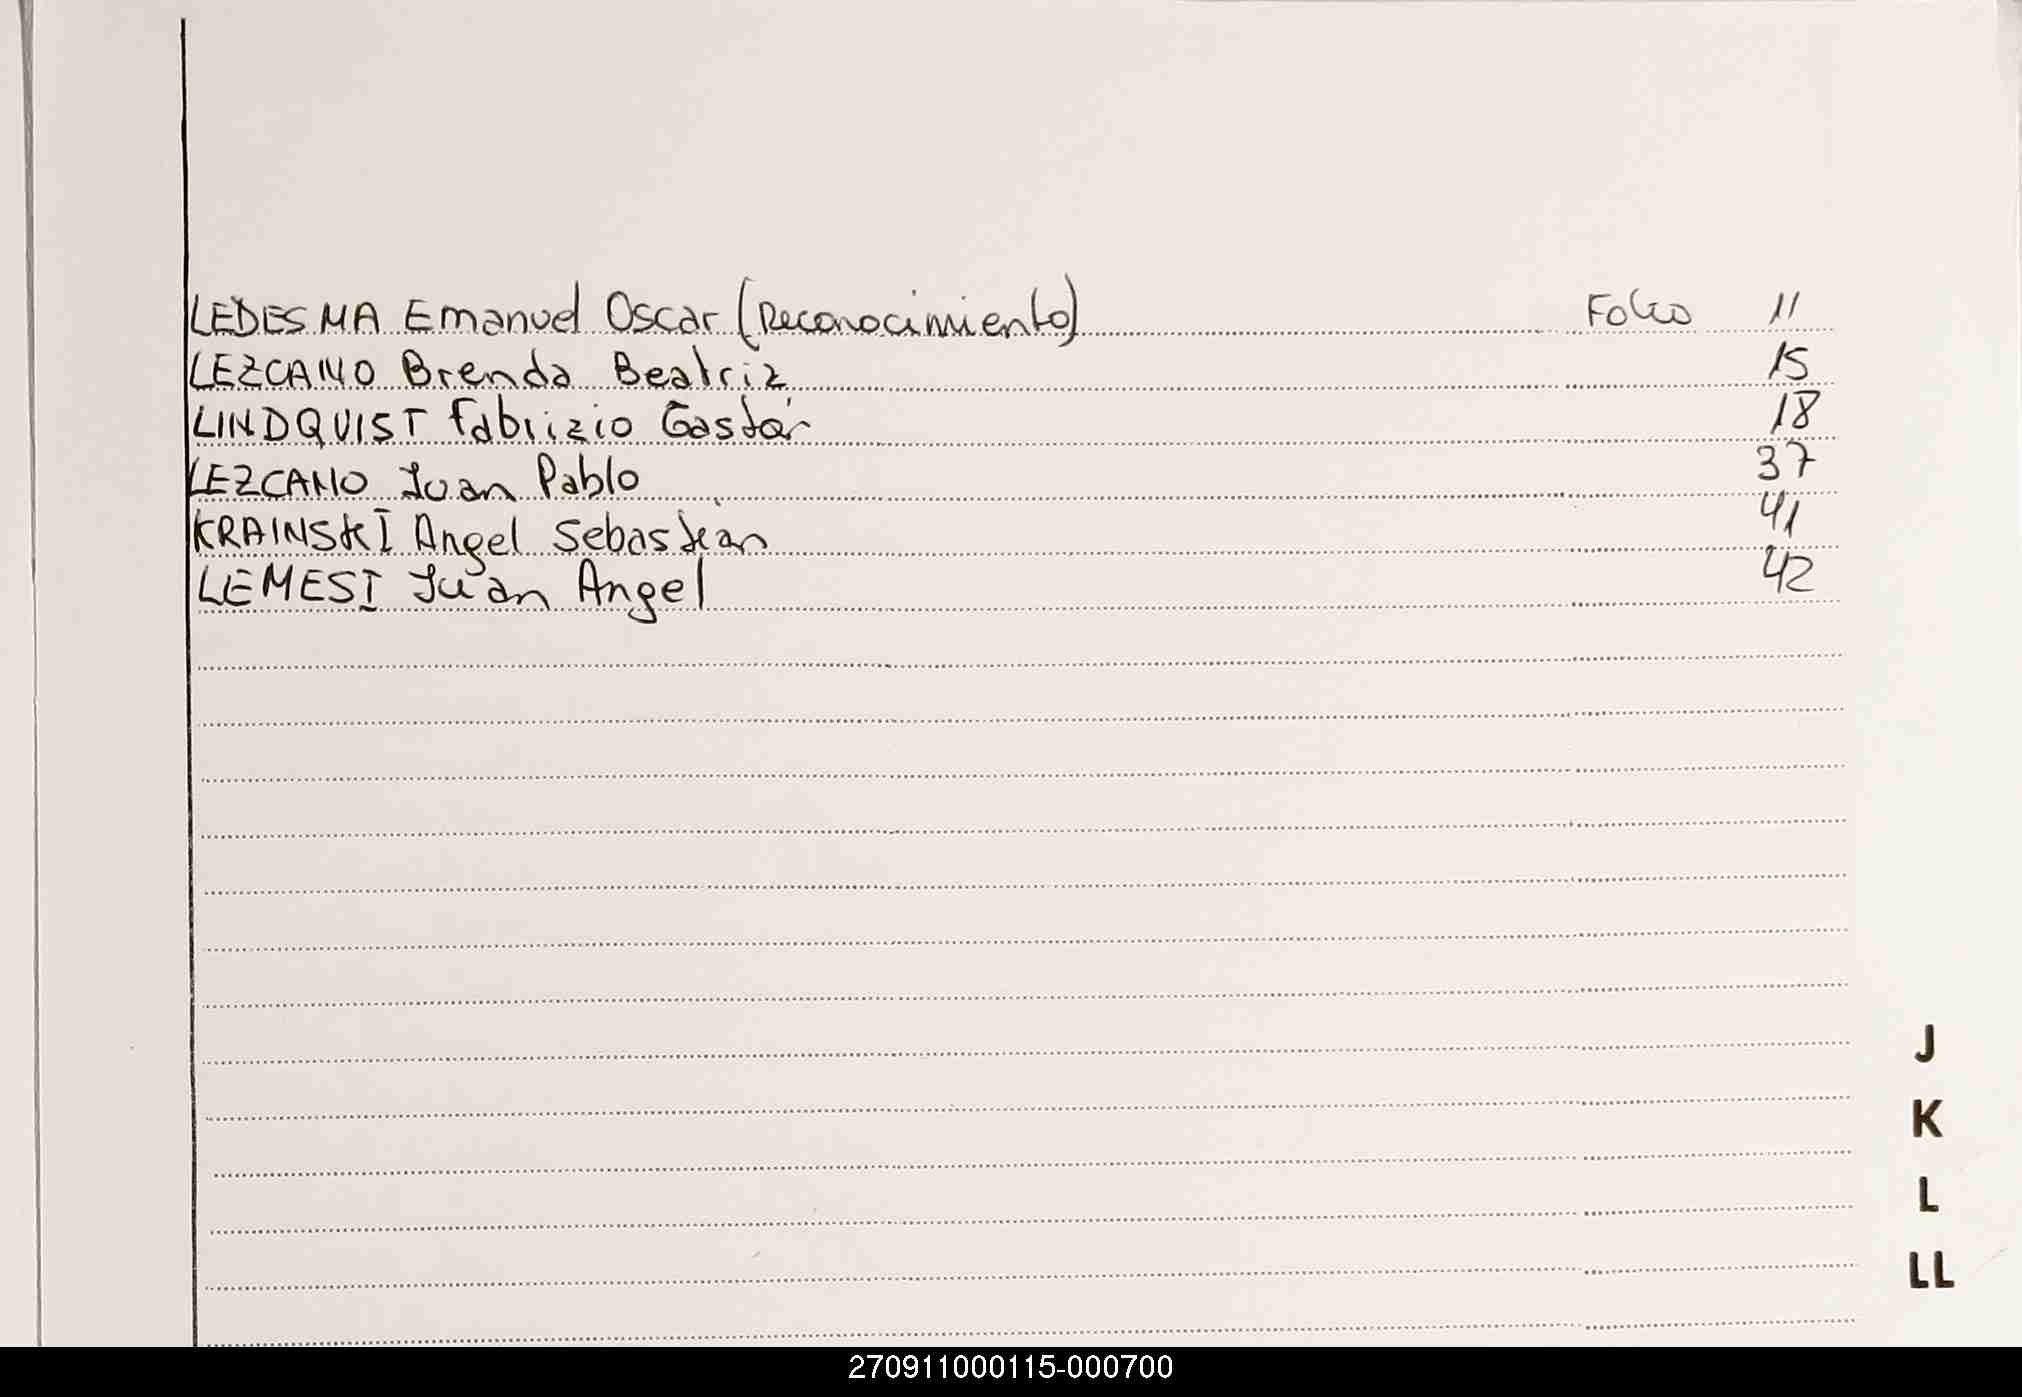 LEDESMA Emanuel Oscar (Reconocimiento) Folio 11
LEZCANO Brenda Beatriz 15
LINDQUIST Fabrizio Gastón 18
LEZCANO Juan Pablo 37
KRAINSKI Angel Sebastián 41
LEMESI Juan Angel 42
J
K
L
LL
270911000115-000700